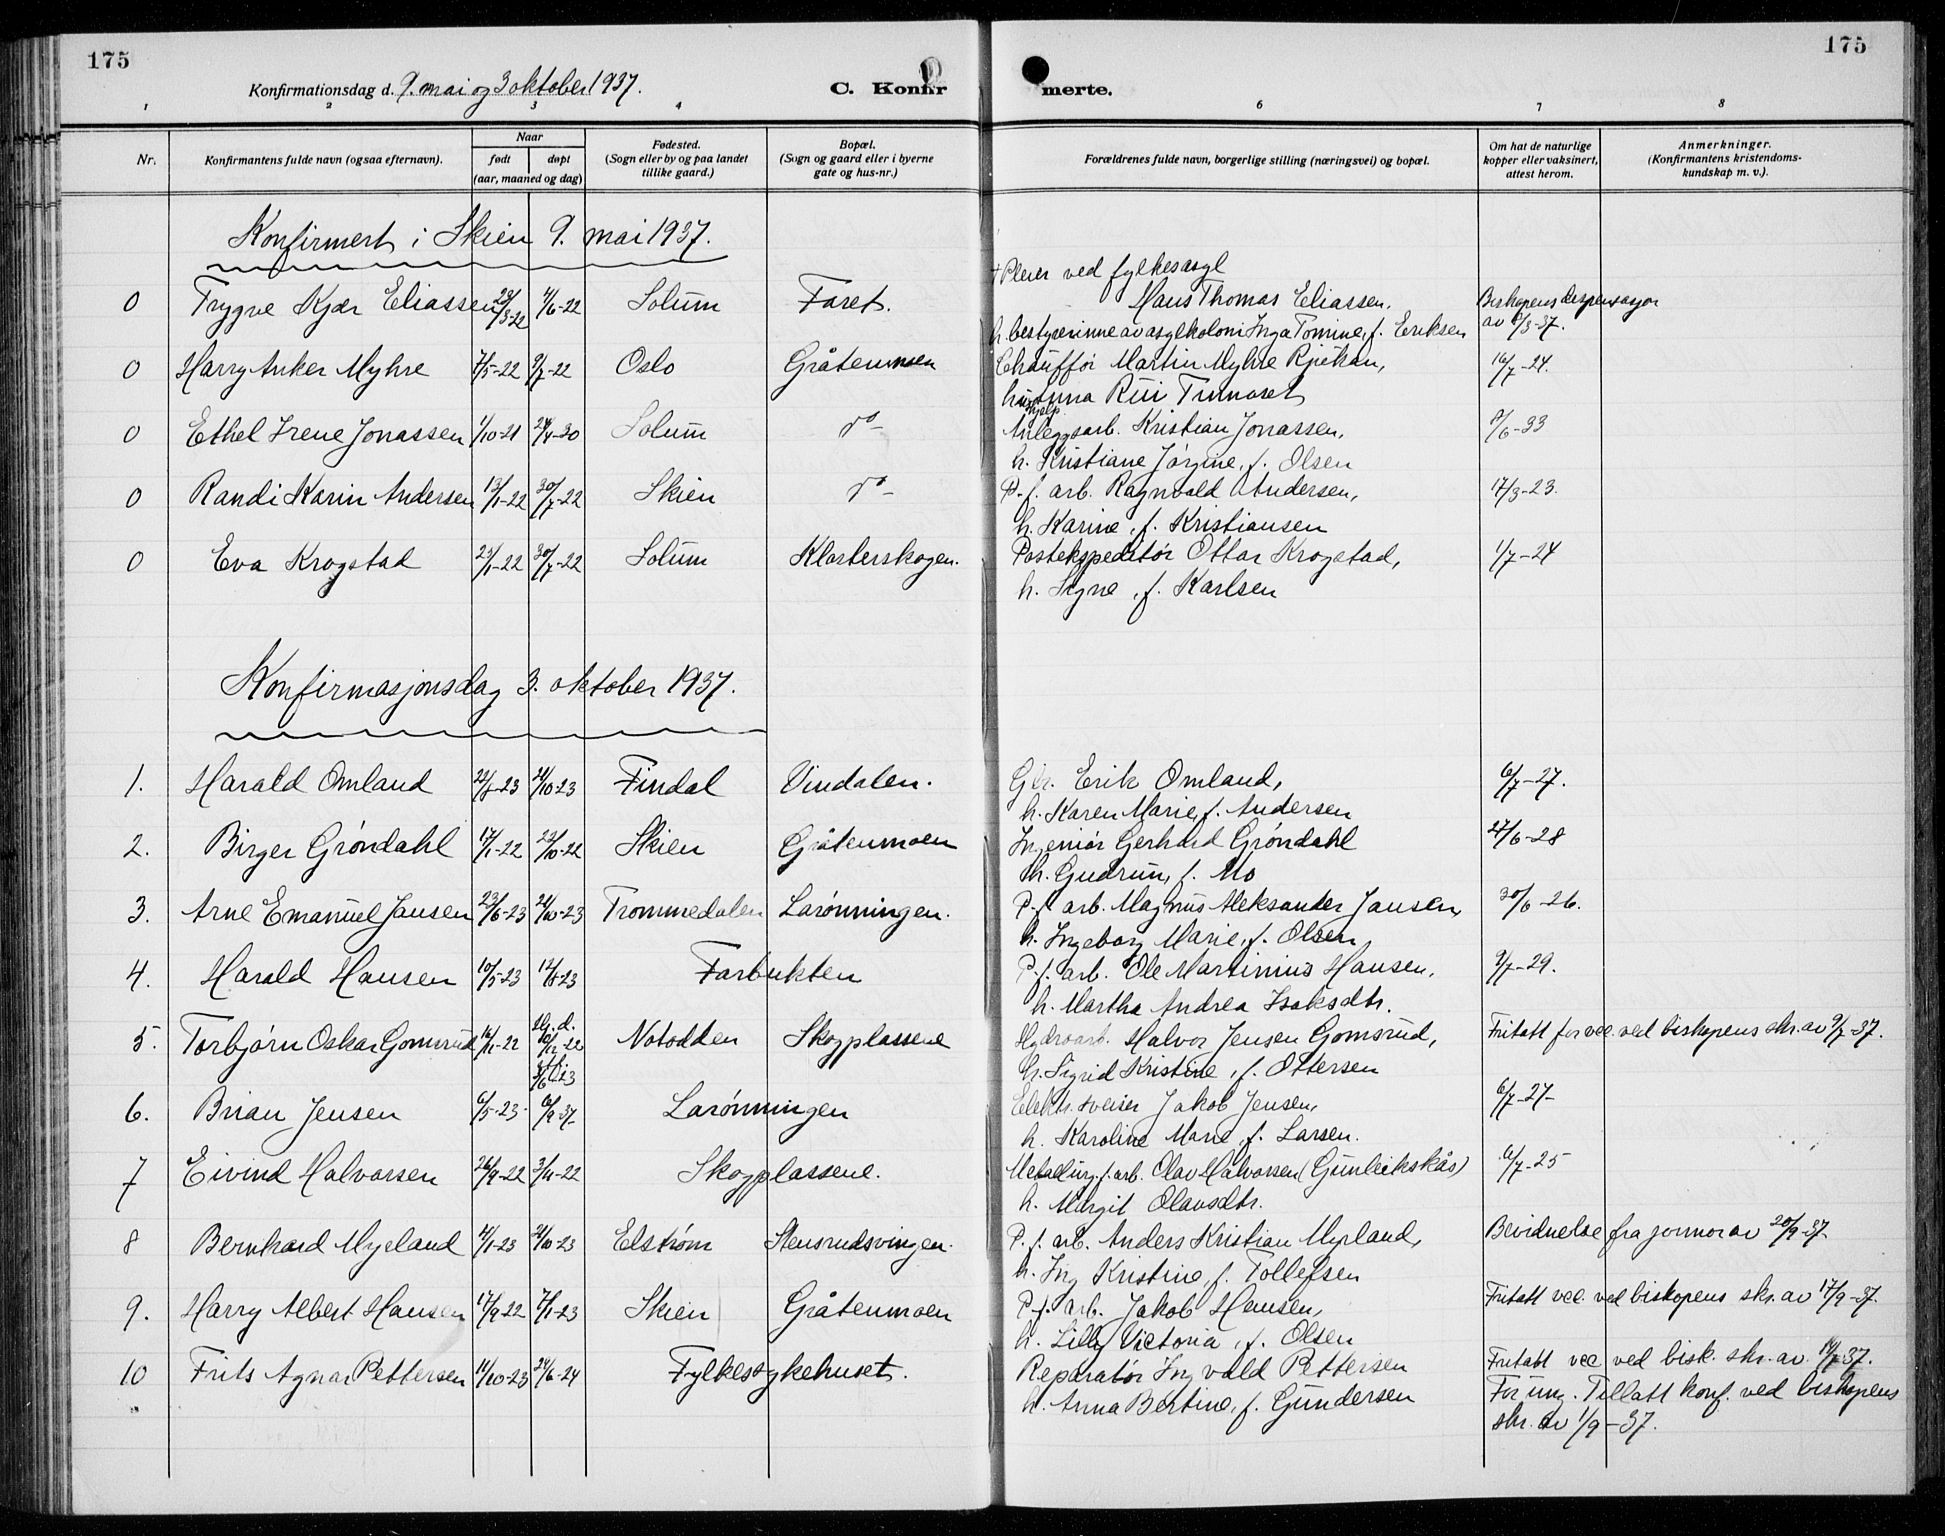 175
175
Konfirmationsdag d. 9. mai og 3 oktober 1937.
C. Konfir merte.
1 2 3 4 6 7 8
Nr.
Konfirmantens fulde navn (ogsaa efternavn).
Naar
født døpt
(aar, maaned og dag)
Fødested.
(Sogn eller by og paa landet
tillike gaard.)
Bopæl.
(Sogn og gaard eller i byerne
gate og hus-nr.)
Forældrenes fulde navn, borgerlige stilling (næringsvei) og bopæl.
Om hat de naturlige
kopper eller vaksinert,
attest herom.
Anmerkninger.
(Konfirmantens kristendoms-
kundskap m. v.).
Konfirmert i Skien 9. mai 1937.
+ Pleier ved fylkesasyl
0 Trygve Kjær Eliassen 23/3-22 4/6-22 Solum Faret. Hans Thomas Eliassen, Biskopens dispensasjon
h. bestyrerinne av asylkoloni Inga Tomine, f. Eriksen av 8/3-37.
0 Harry Anker Myhre 7/5-22 9/7-22 Oslo Gråtenmoen Chauffør Martin Myhre Rjukan, 16/7-24.
hushjelp Anna Rui
0 Ethel Irene Jonassen 1/10-21 24/4-30 Solum do- Anleggsarb. Kristian Jonassen, 8/6-33
h. Kristiane Jørgine, f. Olsen
0 Randi Karin Andersen 13/1-22 30/7-22 Skien do- P.f. arb. Ragnvald Andersen, 17/3-23.
h. Karine, f. Kristiansen
0 Eva Krogstad 23/1-22 30/7-22 Solum Klosterskogen. Postekspeditør Ottar Krogstad, 1/7-24
h. Signe, f. Karlsen
Konfirmasjonsdag 3. oktober 1937.
1. Harald Omland 22/8-23 21/10-23 Findal Vindalen. Gbr. Erik Omland, 6/7-27.
h. Karen Marie, f. Andersen
2. Birger Grøndahl 17/1-22 22/10-22 Skien Gråtenmoen Ingeniør Gerhard Grøndahl 27/6-28
h. Gudrun, f. Mo
3. Arne Emanuel Jansen 23/6-23 21/10-23 Trommedalen Larønningen. P.f. arb. Magnus Aleksander Jansen, 30/6-26.
h. Ingeborg Marie, f. Olsen
4. Harald Hansen 10/5-23 12/8-23 Farbukten P.f. arb. Ole Martinius Hansen, 9/7-29.
h. Martha Andrea Isaksdtr.
5. Torbjørn Oskar Gomsrud 16/11-22 Hj. d. 10/12-22 Notodden Skogplassene Hydroarb. Halvor Jensen Gomsrud, Fritatt for vac. ved biskopens skr. av 9/7-37.
h. Sigrid Kristine, f. Ottersen
6. Brian Jensen 6/5-23. 6/9-37 Larønningen Elektr. sveiser Jakob Jensen, 6/7-27-
h. Karoline Marie, f. Larsen.
7 Eivind Halvorsen 26/9-22 3/11-22 Skogplassene. Metallurg. f. arb. Olav Halvorsen (Gunleikskås) 6/7-25
h. Margit Olavsdtr.
8 Bernhard Myrland 4/1-23 21/10-23 Elstrøm Stensrudsvingen. P.f. arb. Anders Kristian Myrland, Bevidnelse fra jormor av 20/9-37-
h. Ing Kristine, f. Tollefsen
9. Harry Albert Hansen 17/9-22 7/1-23 Skien Gråtenmoen P.f. arb. Jakob Hansen, Fritatt vac. ved biskopens skr. av 17/9-37.
h. Lilly Victoria, f. Olsen
10 Frits Agnar Pettersen 11/10-23 24/6-24 Fylkessykehuset. Reparatør Ingvald Pettersen Fritatt vac ved bisk. skr. av 14/7-37.
h. Anna Bertine, f. Gundersen For ung. Tillatt konf. ved biskopens
skr. av 1/9-37.